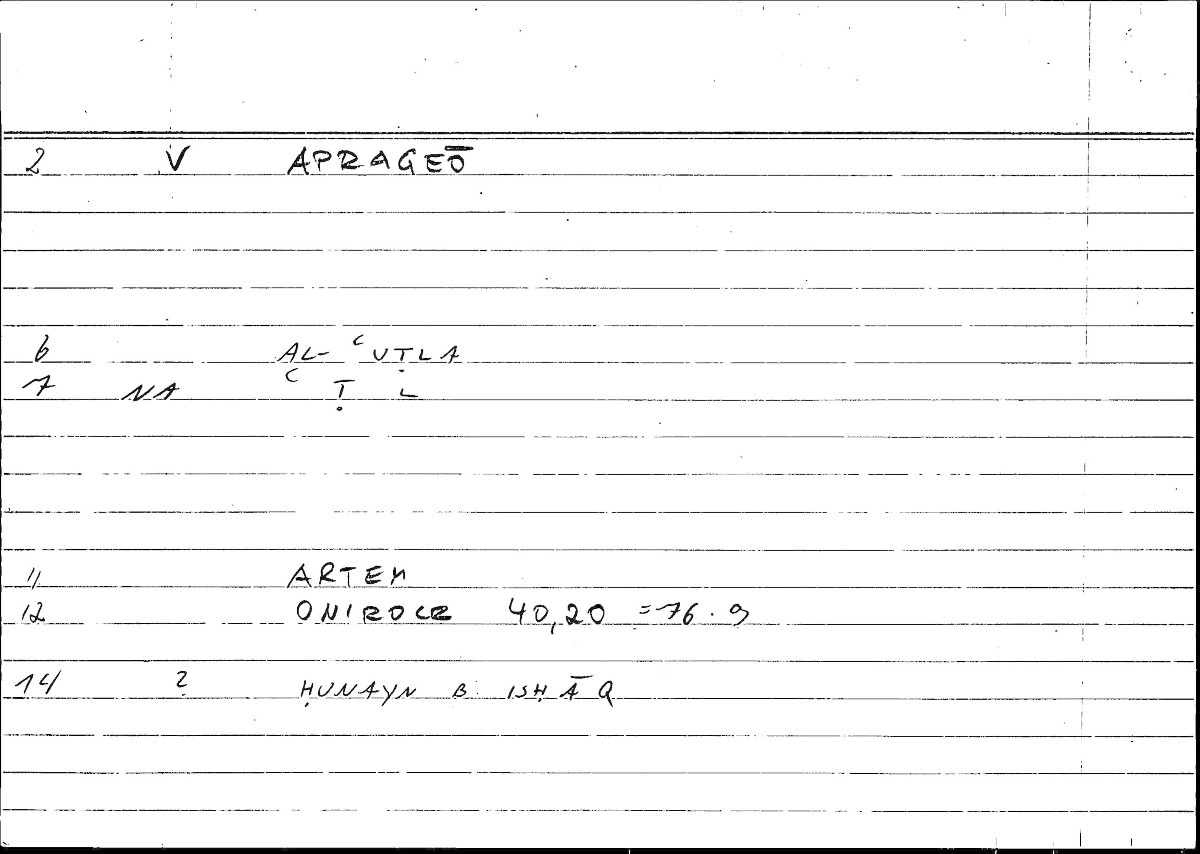 2 V APRAGEŌ
6 AL- ʿUṬLA
7 NA ʿ Ṭ L
11 ARTEM
12 ONIROCR 40,20 =76.9
14 ? ḤUNAYN B. ISḤĀQ